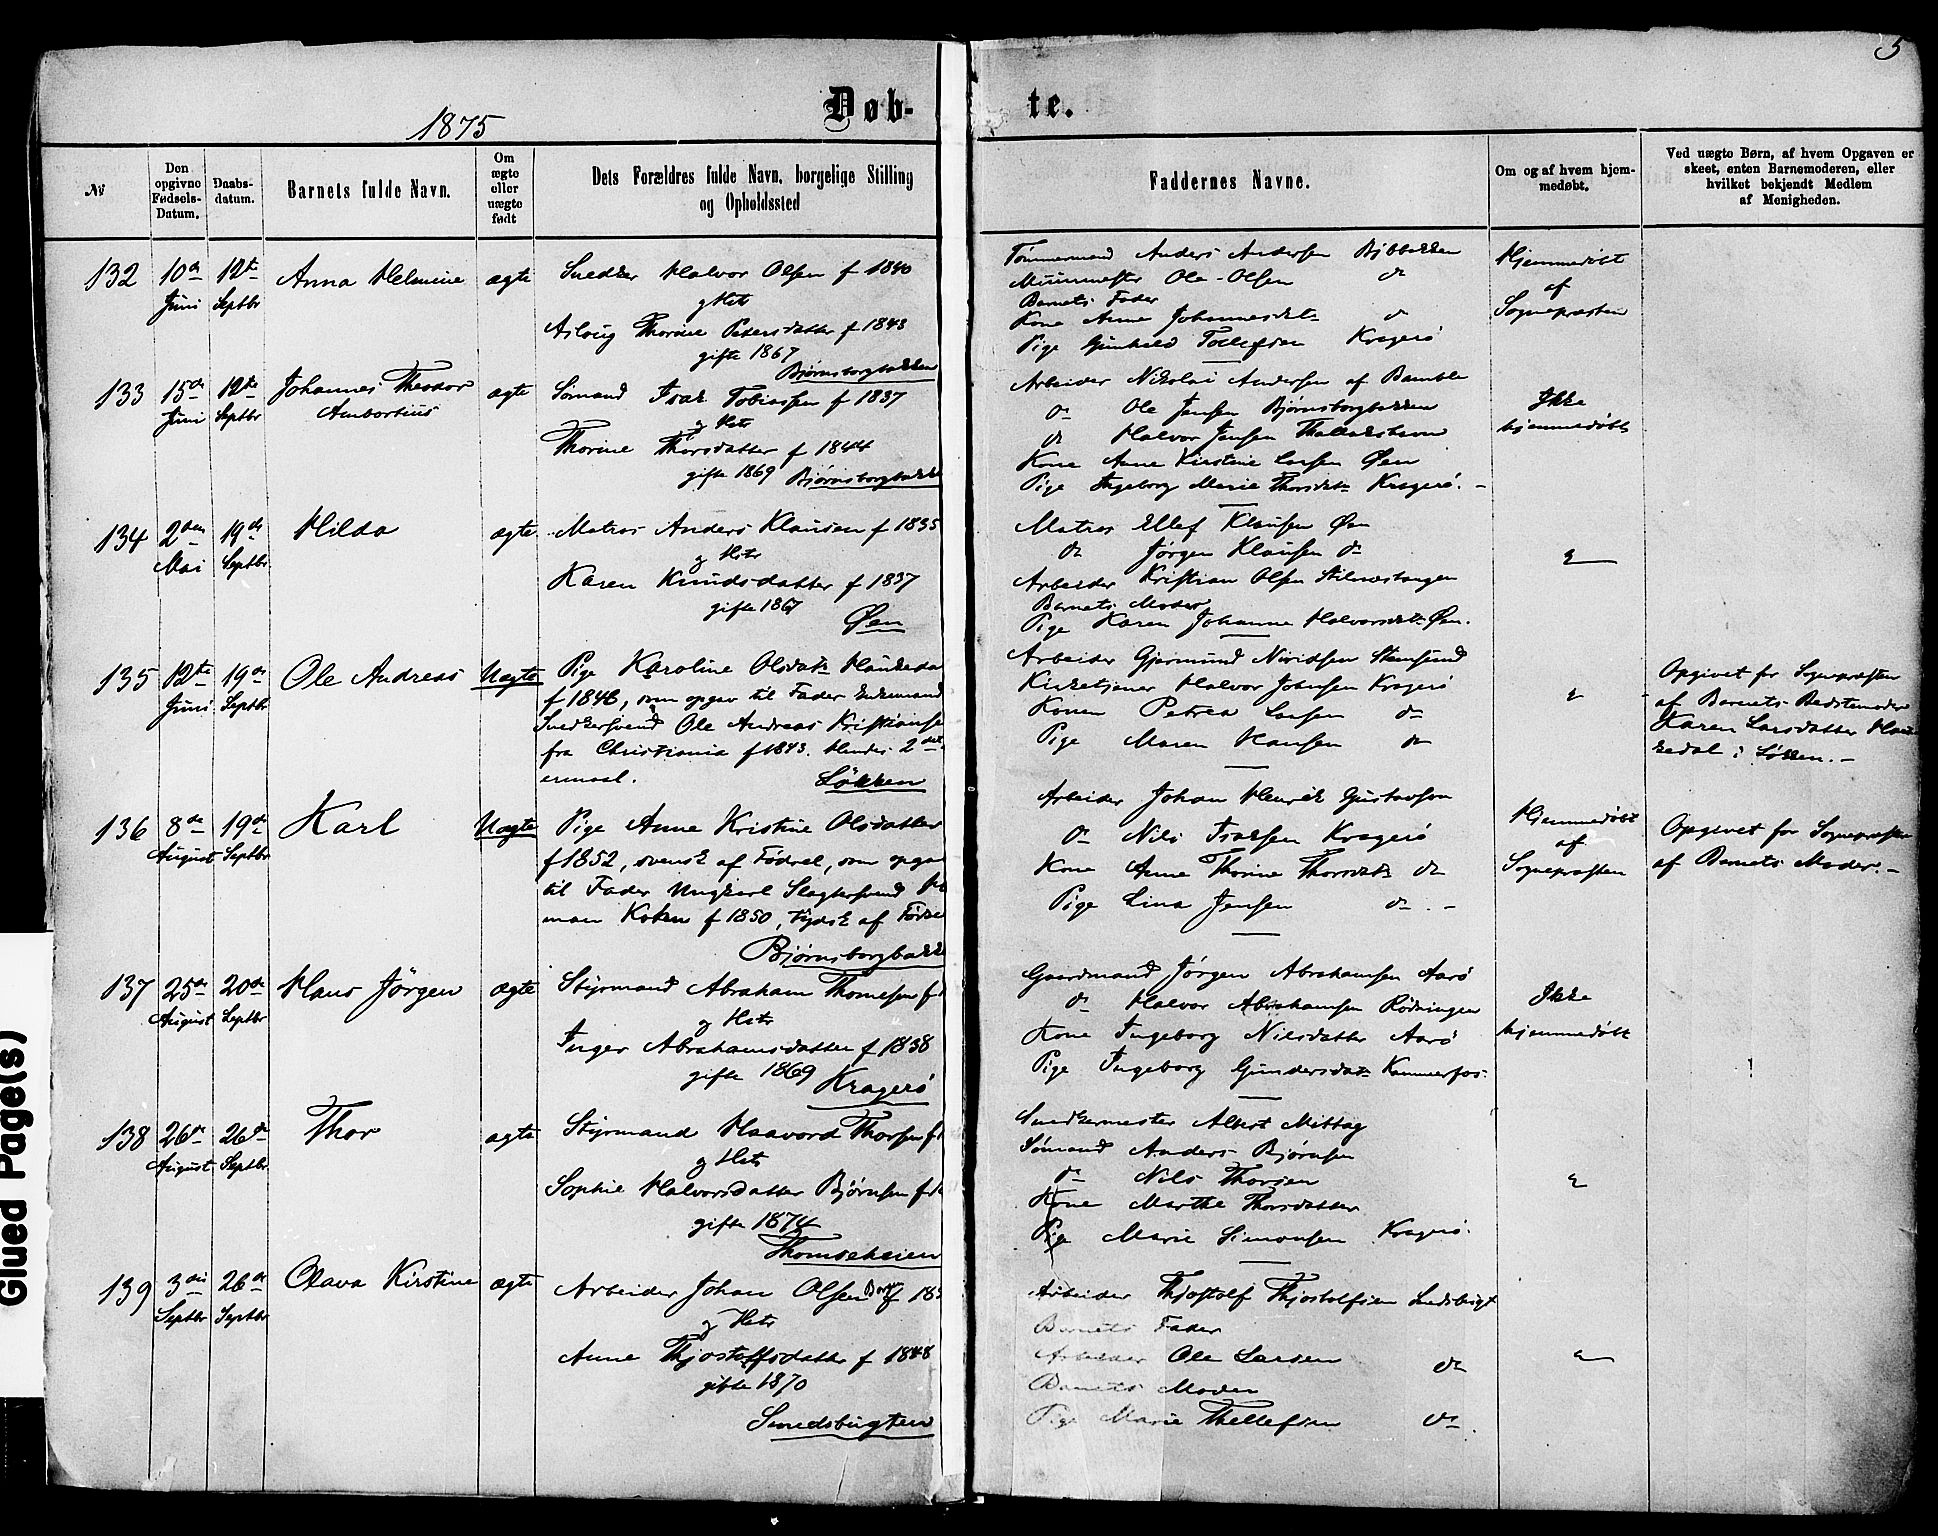 5
Døb-
te.
1875
№
Den opgivne Fødsels-Datum.
Daabs-datum.
Barnets fulde Navn.
Om ægte eller uægte født
Dets Forældres fulde Navn, borgelige Stilling og Opholdssted
Faddernes Navne.
Om og af hvem hjem-medøbt.
Ved uægte Børn, af hvem Opgaven er skeet, enten Barnemoderen, eller hvilket bekjendt Medlem af Menigheden.
132
10de Juni
12te Septbr
Anna Helmine
ægte
Snedker Halvor Olsen f 1840
og Hstr
Asloug Thorine Pedersdatter f 1843
gifte 1867
Bjørnsborgbakken
Tømmermand Anders Andersen
Muurmester Ole Olsen do
Barnets Fader
Kone Anne Johannesdtr do
Pige Gunhild Tollefsen Kragerö
Hjemmedöbt
af
Sognepræsten
133
15de Juni
12te Septbr
Johannes Theodor
ægte
Sömand Isak Tobiassen f 1837
og Hstr
Thorine Thorsdatter f 1844
gifte 1869 Bjørnsborgbakke
Arbeider Nikolai Andersen af Bamble
do Ole Jensen Bjørnsborgbakken
do Halvor Jensen
Kone Anne Kirstine Larsen Øen
Pige Ingeborg Marie Thorsdtr Kragerö.
Ikke
hjemmedöbt
134
2den Mai
19de Septbr
Hilda
ægte
Matros Anders Klausen f 1835
og Hstr
Karen Knudsdatter f 1837
gifte 1867
Øen
Matros Ellef Klausen Øen
do Jørgen Klausen do
Arbeider Kristian Olsen Stilnestangen
Barnets Moder
Pige Karen Johanne Halvorsdtr Øen.
"
135
12te Juni
19de Septbr
Ole Andreas
Uægte
Pige Karoline Olsdatr Haukeda
f 1846, som opgav til Fader Enkemand
Snedkersvend Ole Andreas Kristianse
fra Christiania f 1843. Hendes 2det
eiermaal. Løkken
Arbeider Gjermund Stensund
Kirketjener Halvor Johnsen Kragerö
Konen Petrea Larsen do
Pige Maren Hansen do
"
Opgivet for Sognepræsten
af Barnets Bedstemoder
Karen Larsdatter Hau
kedal i Løkken.
136
8de August
19de Septbr
Karl
Uægte
Pige Anne Kristine Olsdatter
f 1852, svensk af Födsel, som opga
til Fader Ungkarl Slagtersvend
man f 1850, tydsk af Födse
Bjørnsborgbakke
Arbeider Johan Henrik Gustavson
do Nils Isaksen Kragerö
Kone Anne Thorine Thorsdtr do
Pige Lina Jensen do
Hjemmedöbt
af
Sognepræsten
Opgivet for Sognepræsten
af Barnets Moder.
137
25de August
20de Septbr
Hans Jörgen
ægte
Styrmand Abraham Thomesen f
og Hstr
Inger Abrahamsdatter f 1838
gifte 1869 Kragerö
Gaardmand Jörgen Abrahamsen Aarö
do Halvor Abrahamsen Rödningen
Kone Ingeborg Nielsdatter Aarö
Pige Ingeborg Gundersdatr Kammerfos.
Ikke
hjemmedöbt
138
26de August
26de Septbr
Thor
ægte
Styrmand Haavord Thorsen f
og Hstr
Sophie Halvorsdatter Bjørnsen f
gifte 1874
Thomseheien
Snedkermester Albert Mittag
Sömand Anders Bjørnsen
do Nils Thorsen
Kone Marthe Thorsdatter
Pige Marie Simonsen Kragerö.
"
139
3die Septbr
26de Septbr
Olava Kirstine
ægte
Arbeider Johan Olsen f 185
og Hstr
Anne Thjostolfsdatter f 1848
gifte 1870
Smedsbugten
Arbeider Thjostolf Thjostolfsen Smedsbugt
Barnets Fader
Arbeider Ole Larsen do
Barnets Moder
Pige Marie Thellefsen do
"
Glued Page(s)